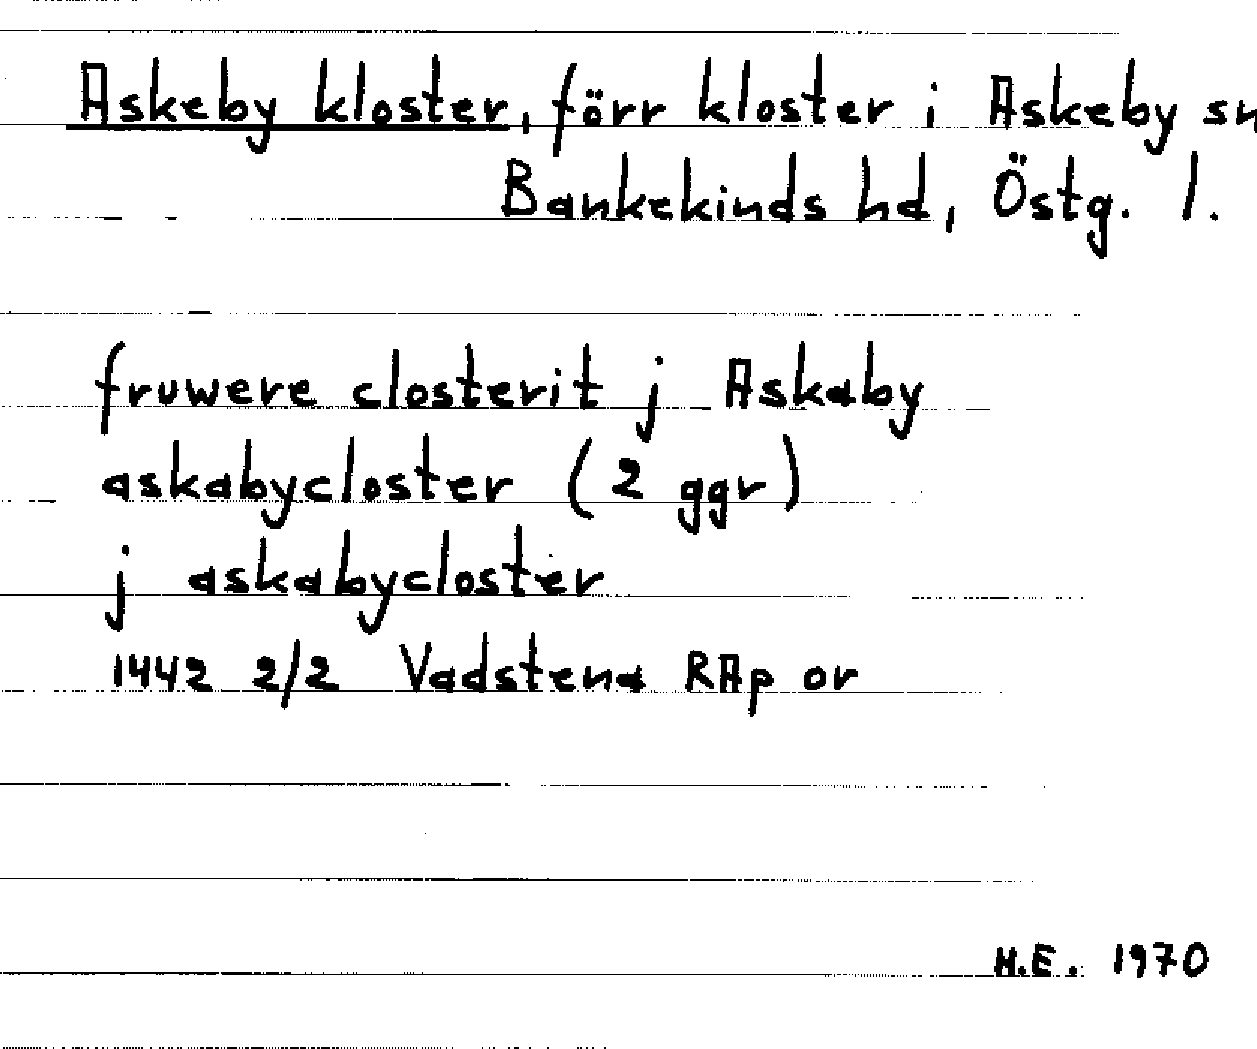 Askeby kloster, förr kloster i Askeby sn
Bankekinds hd, Östg. l.
fruwere closterit j Askaby
askabycloster (2 ggr)
j askabycloster
1442 2/2 Vadstena RAp or
H.E. 1970